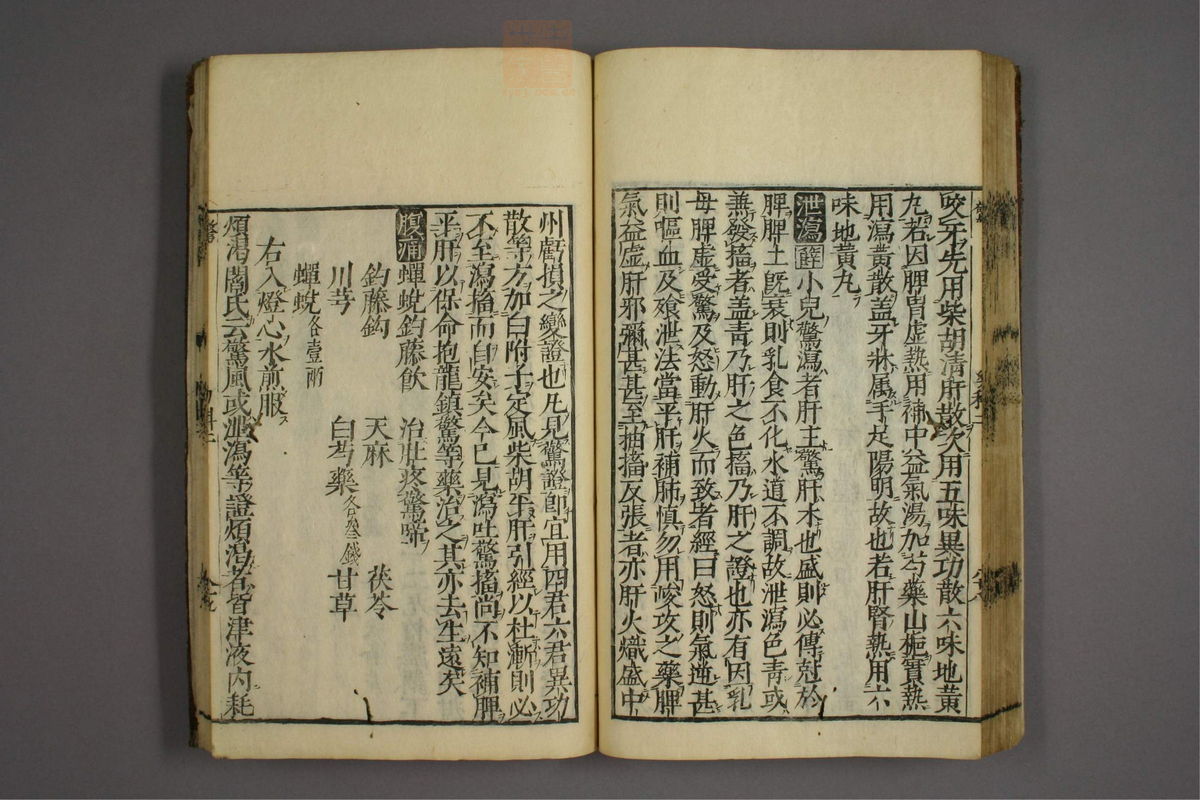 咬牙先用柴胡清肝散次用五味異功散六味地黃
丸若因脾胃虛熱用補中益氣湯加芍藥山梔實熱
用瀉黃散盖牙牀属手足陽明故也若肝腎熱用六
味地黃丸
泄瀉 薛 小兒驚瀉者肝主驚肝木也盛則必傳尅於
脾脾土既衰則乳食不化水道不調故泄瀉色青或
兼發搐者盖青乃肝之色搐乃肝之證也亦有因乳
母脾虛受驚及怒動肝火而致者經曰怒則氣逆甚
則嘔血及飱泄法當平肝補脾慎勿用峻攻之藥脾
氣益虛肝邪彌甚甚至抽搐反張者亦肝火熾盛中
州虧損之變證也凡見驚證即宜用四君六君異功
散等方加白附子定風柴胡平肝引經以杜漸則必
不至瀉搐而自安矣今已見瀉吐驚搐尚不知補脾
平肝以保命抱龍鎮驚等藥治之其亦去生遠矣
腹痛 蟬蛻鈎藤飲 治肚疼驚啼
鈎藤鈎 天麻 茯苓
川芎 白芍藥各叁錢 甘草
蟬蛻各壹兩
右入燈心水煎服
煩渇 閻氏云驚風或泄瀉等證煩渇者皆津液内耗